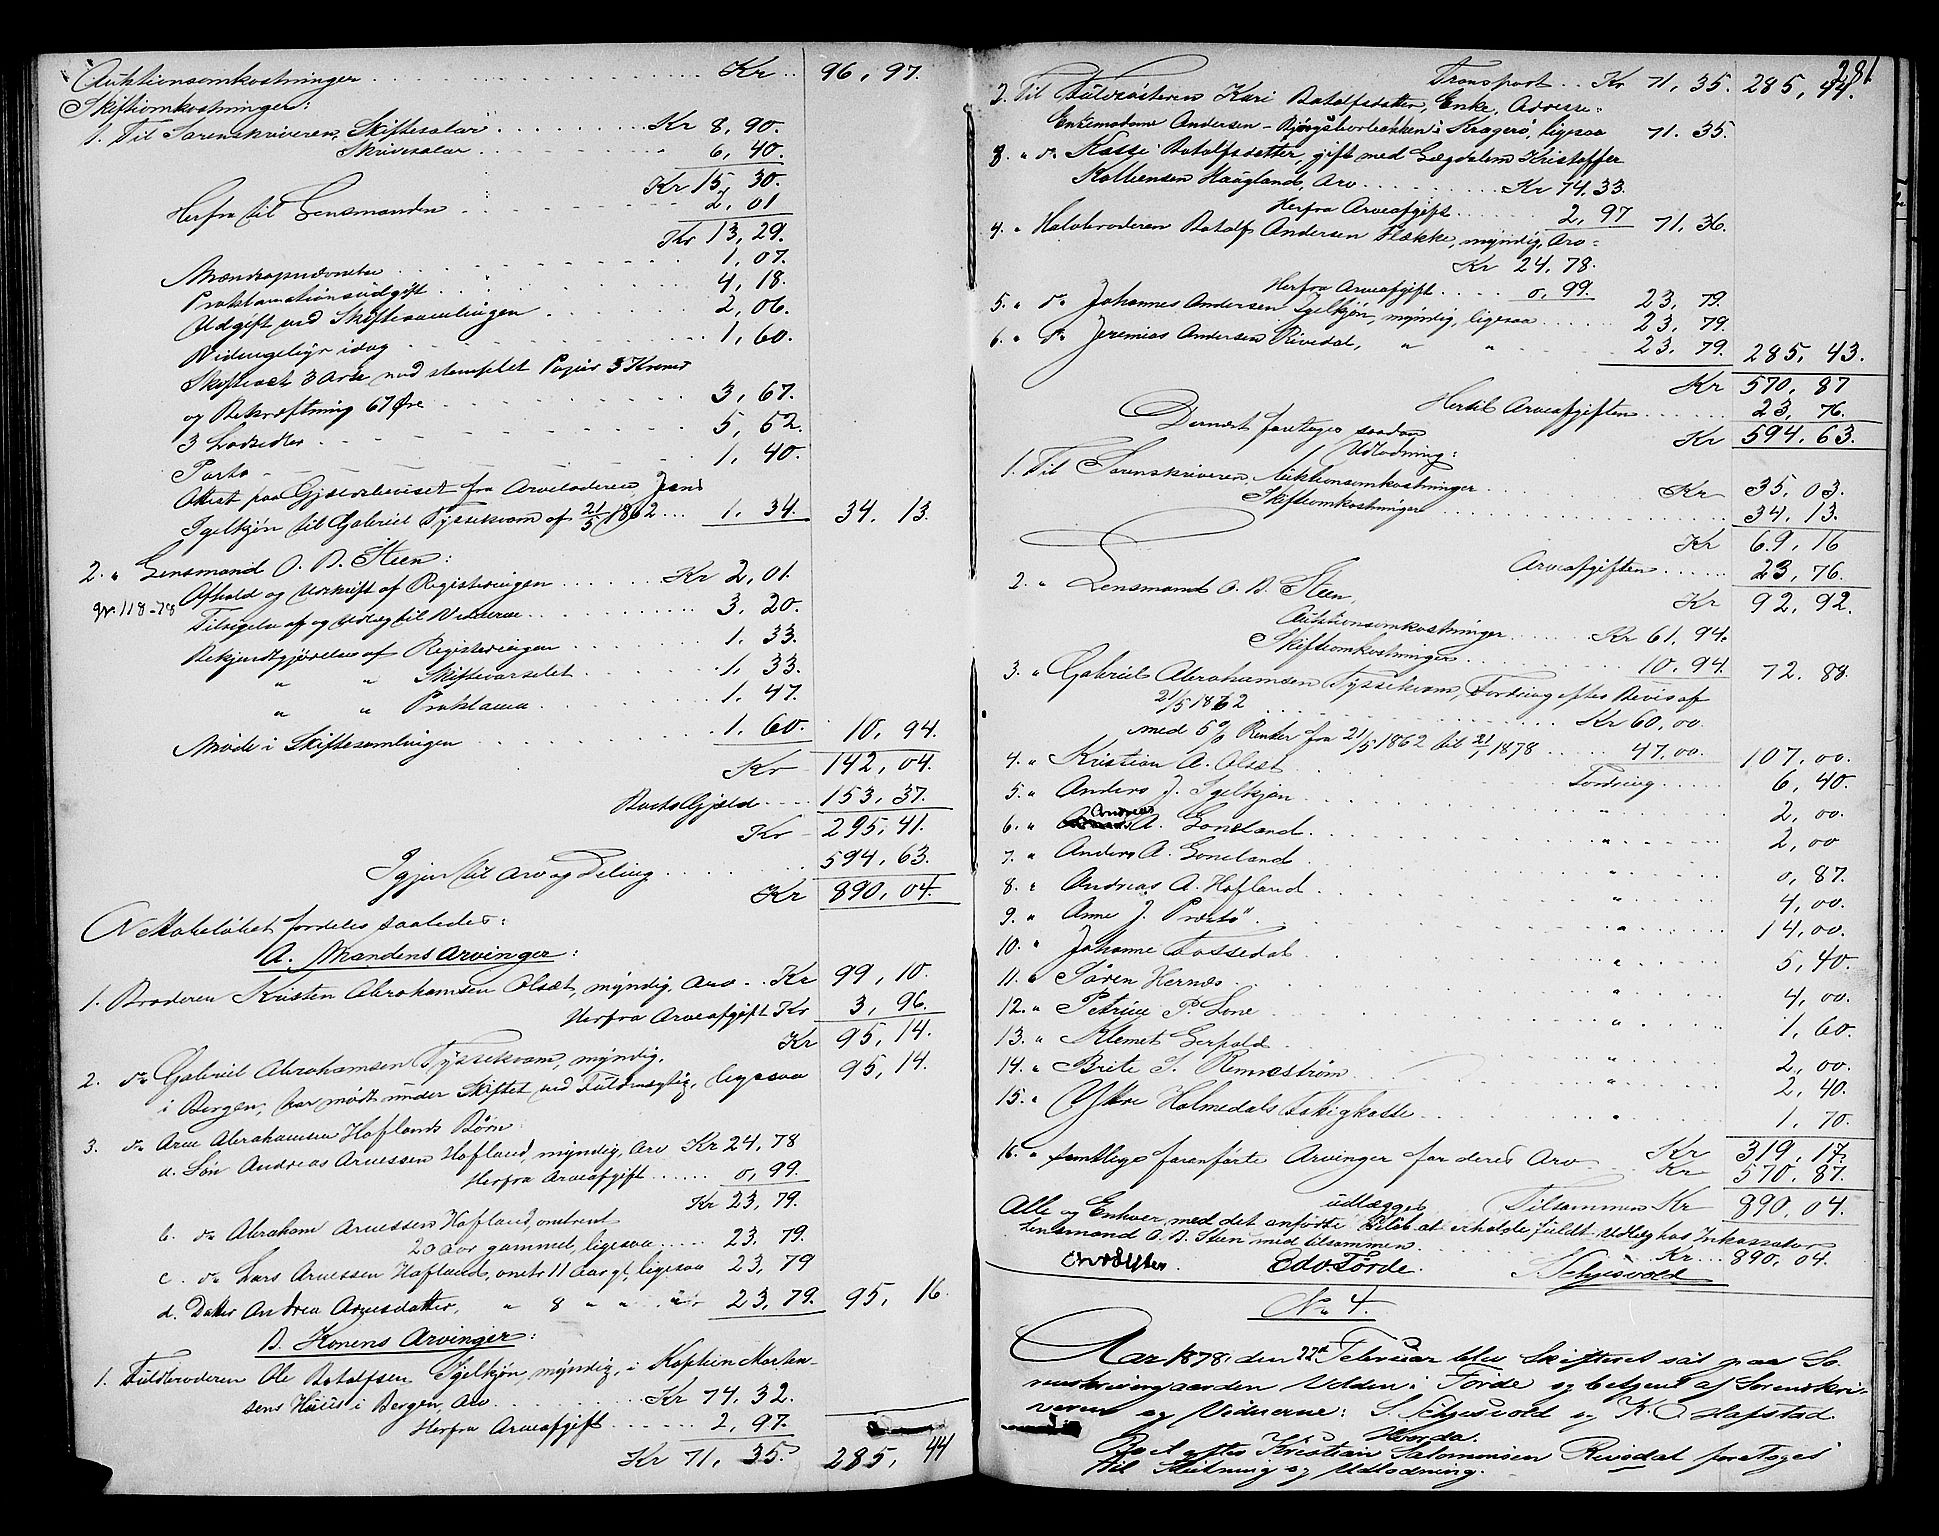 Auktionsomkostninger . . . Kr . . 96, 97.
Skifteomkostninger:
1. Til Sorenskriveren, Skiftesalær . . . Kr 8, 90.
Skrivesalær . . . 6, 40.
Kr 15, 30.
Herfra til Lensmanden . . . 2, 01
Kr 13, 29.
1, 07.
Proklamationsudgift . . . 4, 18.
Udgift ved Skiftesamlingen . . . 2, 06.
Vidnegebyr idag . . . 1, 60.
Skifteact 3 Ark med stemplet Papir 3 Kroner
og Bekræftning 67 Øre . . . 3, 67.
3 Lodsedler . . . 5, 52.
Porto . . . 1, 40.
Attest paa Gjældsbeviset fra Arveladeren Jens
Igelkjøn til Gabriel Tyssekvam af 21/5 1862 . . . 1, 34. 34, 13.
2. " Lensmand O. B. Steen:
Afhold og Udskrift af Registeringen . . . Kr 2, 01.
gr. 118-78 Tilsigelse af og Udlæg til Vidnerne . . . 3, 20.
Bekjendtgjørelse af Registeringen . . . 1, 33.
" " Skiftevarselet . . . 1, 33.
" " Proklama . . . 1, 47.
Møde i Skiftesamlingen . . . 1, 60. 10, 94.
Kr 142, 04.
Boets Gjæld . . . 153, 37.
Kr 295, 41.
Igjen til Arv og Deling . . . 594, 63.
Kr 890, 04.
Nettobeløbet fordeles saaledes:
A. Mandens Arvinger:
1. Broderen Kristen Abrahamsen Olsæt, myndig, Arv . . Kr 99, 10.
Herfra Arveafgift Kr 3, 96.
Kr 95, 14.
2. do Gabriel Abrahamsen Tyssekvam, myndig,
i Bergen, har mødt under Skiftet ved Fuldmægtig, ligesaa 95, 14.
3. do Arne Abrahamsen Hoflands Børn:
a. Søn Andreas Arnessen Hofland, myndig, Arv Kr 24, 78
Herfra Arveafgift . . . 0, 99.
Kr 23, 79.
b. do Abraham Arnessen Hofland, omtrent
20 Aar gammel, ligesaa . . . 23, 79.
c. do Lars Arnessen Hofland, omtr 11 Aar gl, ligesaa 23, 79
d. Datter Andrea Arnesdatter, " 8 " " . . 23, 79. 95, 16.
B. Konens Arvinger:
1. Fuldbroderen Ole Botolfsen Igelkjøn, myndig, i Kaptein Morten-
sens Huus i Bergen, Arv . . . Kr 74, 32.
Herfra Arveafgift . . . 2, 97.
Kr 71, 35. 285, 44
281
Transport . . Kr 71, 35. 285, 44.
2. Til Fuldsøsteren Kari Botolfsdatter, Enke, Adresse:
Enkemadame Andersen - Bjørgsborbakken i Kragerø, ligesaa 71, 35.
3. " do Kasse Botolfsdatter, gift med Lægdslem Kristoffer
Haugland, Arv . . . Kr 74, 33.
Herfra Arveafgift . . . 2, 97 71, 36.
4. " Halvbroderen Botolf Andersen Flække, myndig, Arv:
Kr 24, 78.
Herfra Arveafgift . . . 0, 99. 23, 79.
5. " do Johannes Andersen Igelkjøn, myndig, ligesaa . . . 23, 79.
6. " do Jeremias Andersen Rivedal, " " 23, 79. 285, 43.
Kr 570, 87
Hertil Arveafgiften . . . 23, 76.
Kr 594, 63.
Dernæst foretoges saadan
Udlodning:
1. Til Sorenskriveren Auktionsomkostninger . . . Kr 35, 03.
Skifteomkostninger . . . 34, 13.
Kr 69, 16
Arveafgiften . . . 23, 76.
Kr 92, 92.
2. " Lensmand O. B. Steen,
Auktionsomkostninger . . . Kr 61, 94.
Skifteomkostninger . . . 10, 94. 72, 88.
3. " Gabriel Abrahamsen Tyssekvam, Fordring efter Bevis af
21/5 1862 . . . Kr 60, 00.
med 5 % Renter fra 21/5 1862 til 21/1 1878 . . . 47, 00. 107, 00.
4. " Kristian A. Olsæt . . . Fordring . . . 6, 40.
5. " Anders J. Igelkjøn . . . " 2, 00.
6. " Andreas A. Loneland . . . " 2, 00
7. " Anders A. Loneland . . . " 0, 87.
8. " Andreas A. Hofland . . . " 4, 00.
9. " Anne J. Prestø . . . " 14, 00.
10. " Johanne Fossedal . . . " 5, 40.
11. " Søren Hernæs . . . " 4, 00.
12. " Petrine P. Lone . . . " 1, 60.
13. " Klemet Gerfald . . . " 2, 00.
14. " Brite S. Rennestrøm . . . " 2, 40.
15. " Ytre Holmedals Fattigkasse . . . " 1, 70.
Kr 319, 17.
16. " samtlige foranførte Arvinger for deres Arv . . . Kr 570, 87.
udlægges Tilsammen Kr 890, 04.
Alle og Enhver med det anførte Beløb at erholde fuldt Udlæg hos Inkassator
Lensmand O. B. Steen med tilsammen . . . Kr . . 890, 04.
Ole O Førde. S. Schjesvold
No 4.
Aar 1878, den 22de Februar blev Skifteret sat paa So-
renskrivergaarden Volden i Førde og betjent af Sorenskri-
veren og Vidnerne: S. Schjesvold og K. O. Hafstad.
Hvorda:
Boet efter Kristian Salomonsen Rivedal foretoges
til Slutning og Udlodning.